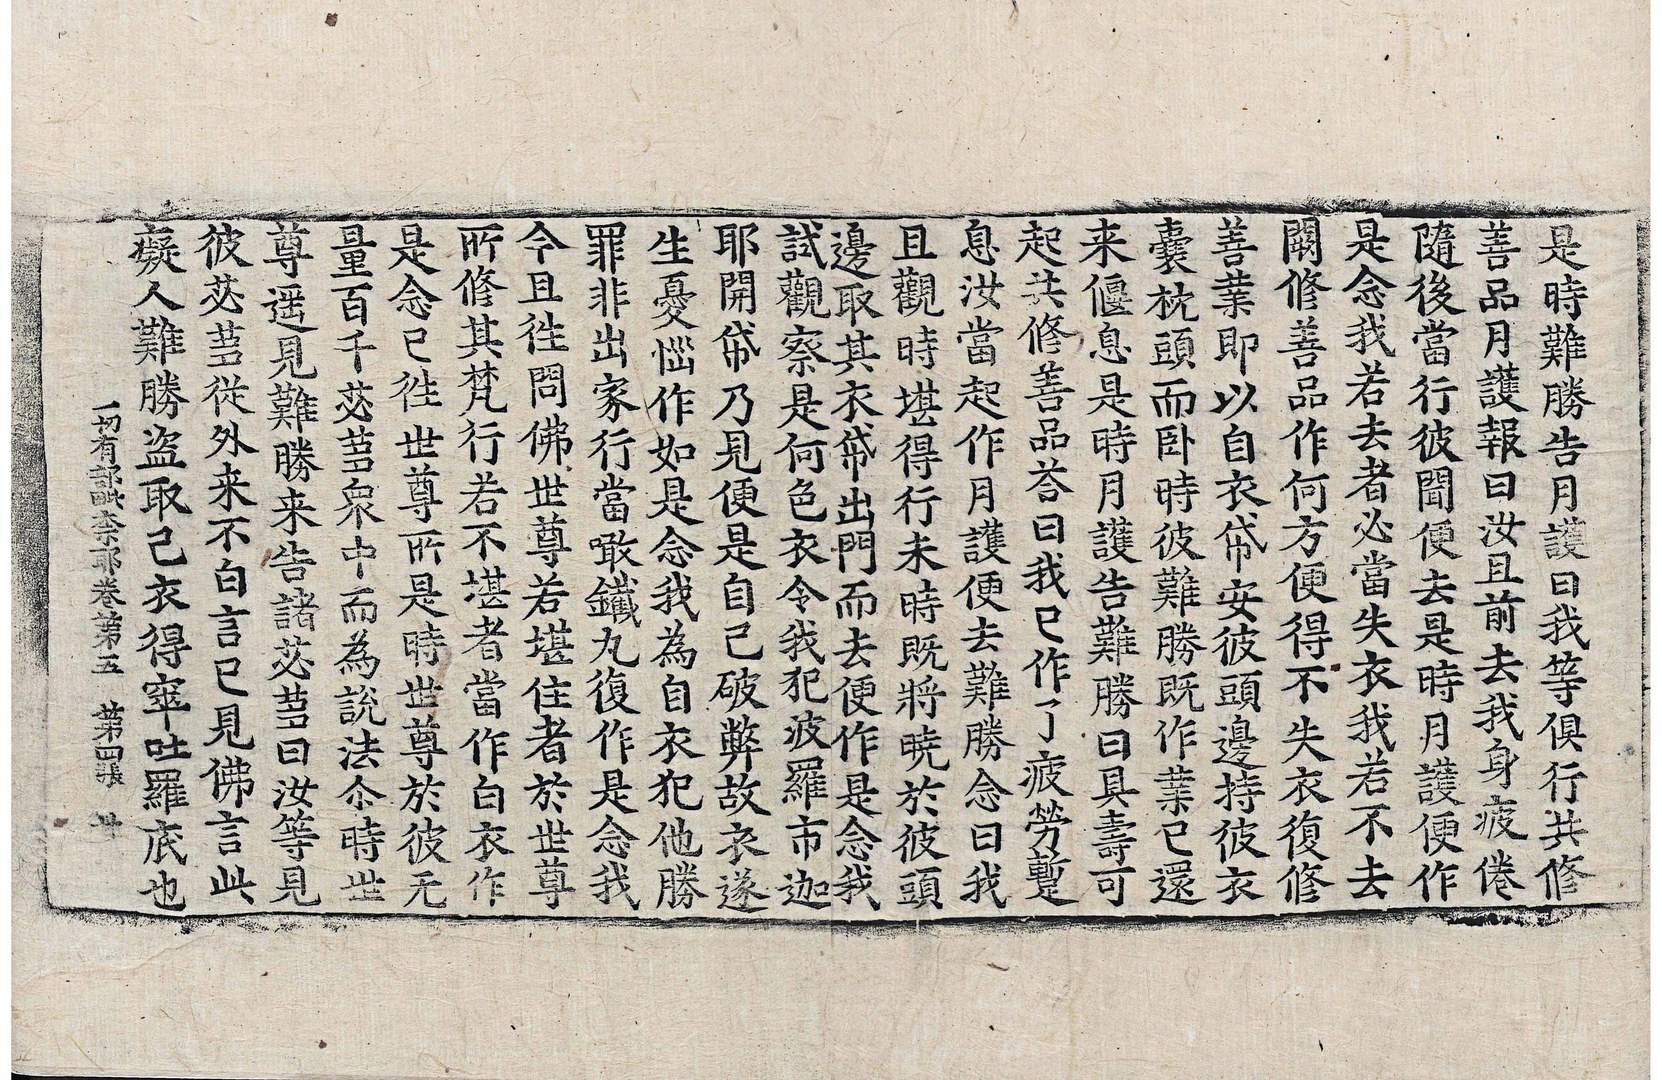 是時難勝告月護曰我等俱行共修
善品月護報曰汝且前去我身疲倦
隨後當行彼聞便去是時月護便作
是念我若去者必當失衣我若不去
闕修善品作何方便得不失衣復修
善業即以自衣帒安彼頭邊持彼衣
囊枕頭而卧時彼難勝既作業已還
来偃息是時月護告難勝曰具壽可
起共修善品荅曰我已作了疲勞蹔
息汝當起作月護便去難勝念曰我
且觀時堪得行未時既將曉於彼頭
邊取其衣帒出門而去便作是念我
試觀察是何色衣令我犯波羅市迦
耶開帒乃見便是自己破弊故衣遂
生憂惱作如是念我為自衣犯他勝
罪非出家行當噉鐵丸復作是念我
今且徃問佛世尊若堪住者於世尊
所修其梵行若不堪者當作白衣作
是念已徃世尊所是時世尊於彼无
量百千苾芻衆中而為説法尒時世
尊遥見難勝来告諸苾芻曰汝等見
彼苾芻從外来不白言已見佛言此
癡人難勝盜取己衣得窣吐羅底也
一切有部毗奈耶卷第五　第四張